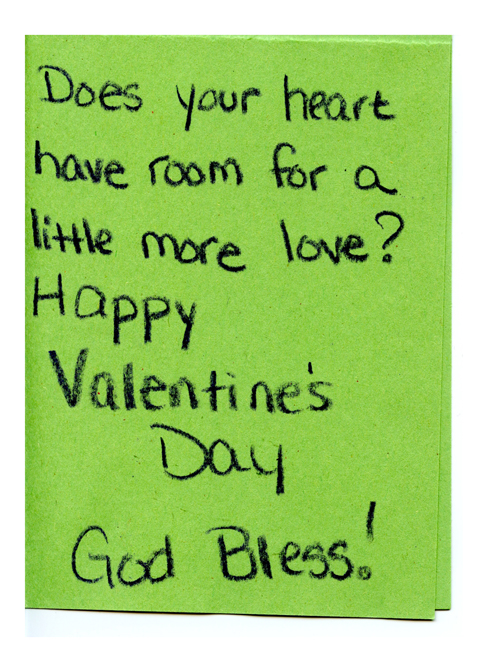 Does your heart
have room for a
little more love?
Happy
Valentine's
Day
God Bless!